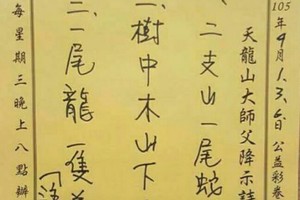 105年9月1.3.6日公益彩卷
天龍山大師父降示詩
、二支山一尾蛇
二、樹中木山下
三、一尾龍一隻
每星期三晚上八點辦